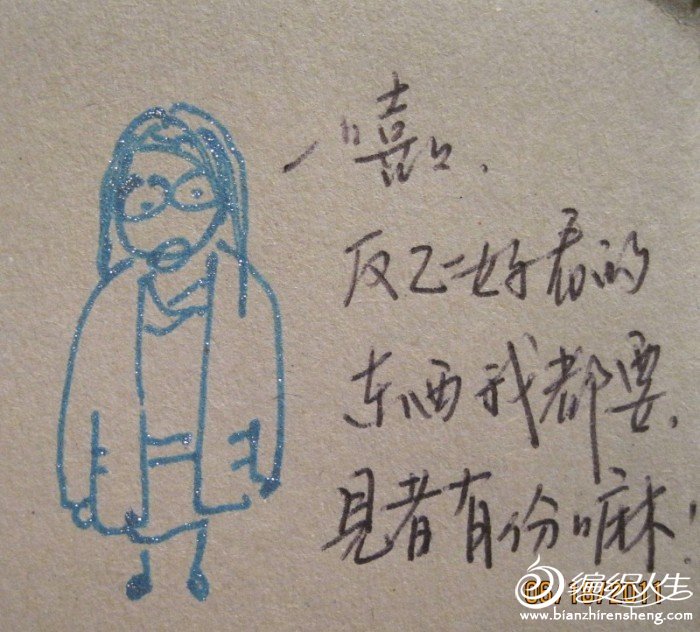 嘻
反正好看的
东西我都要
見者有份嘛!
编织人生
www.bianzhirensheng.com